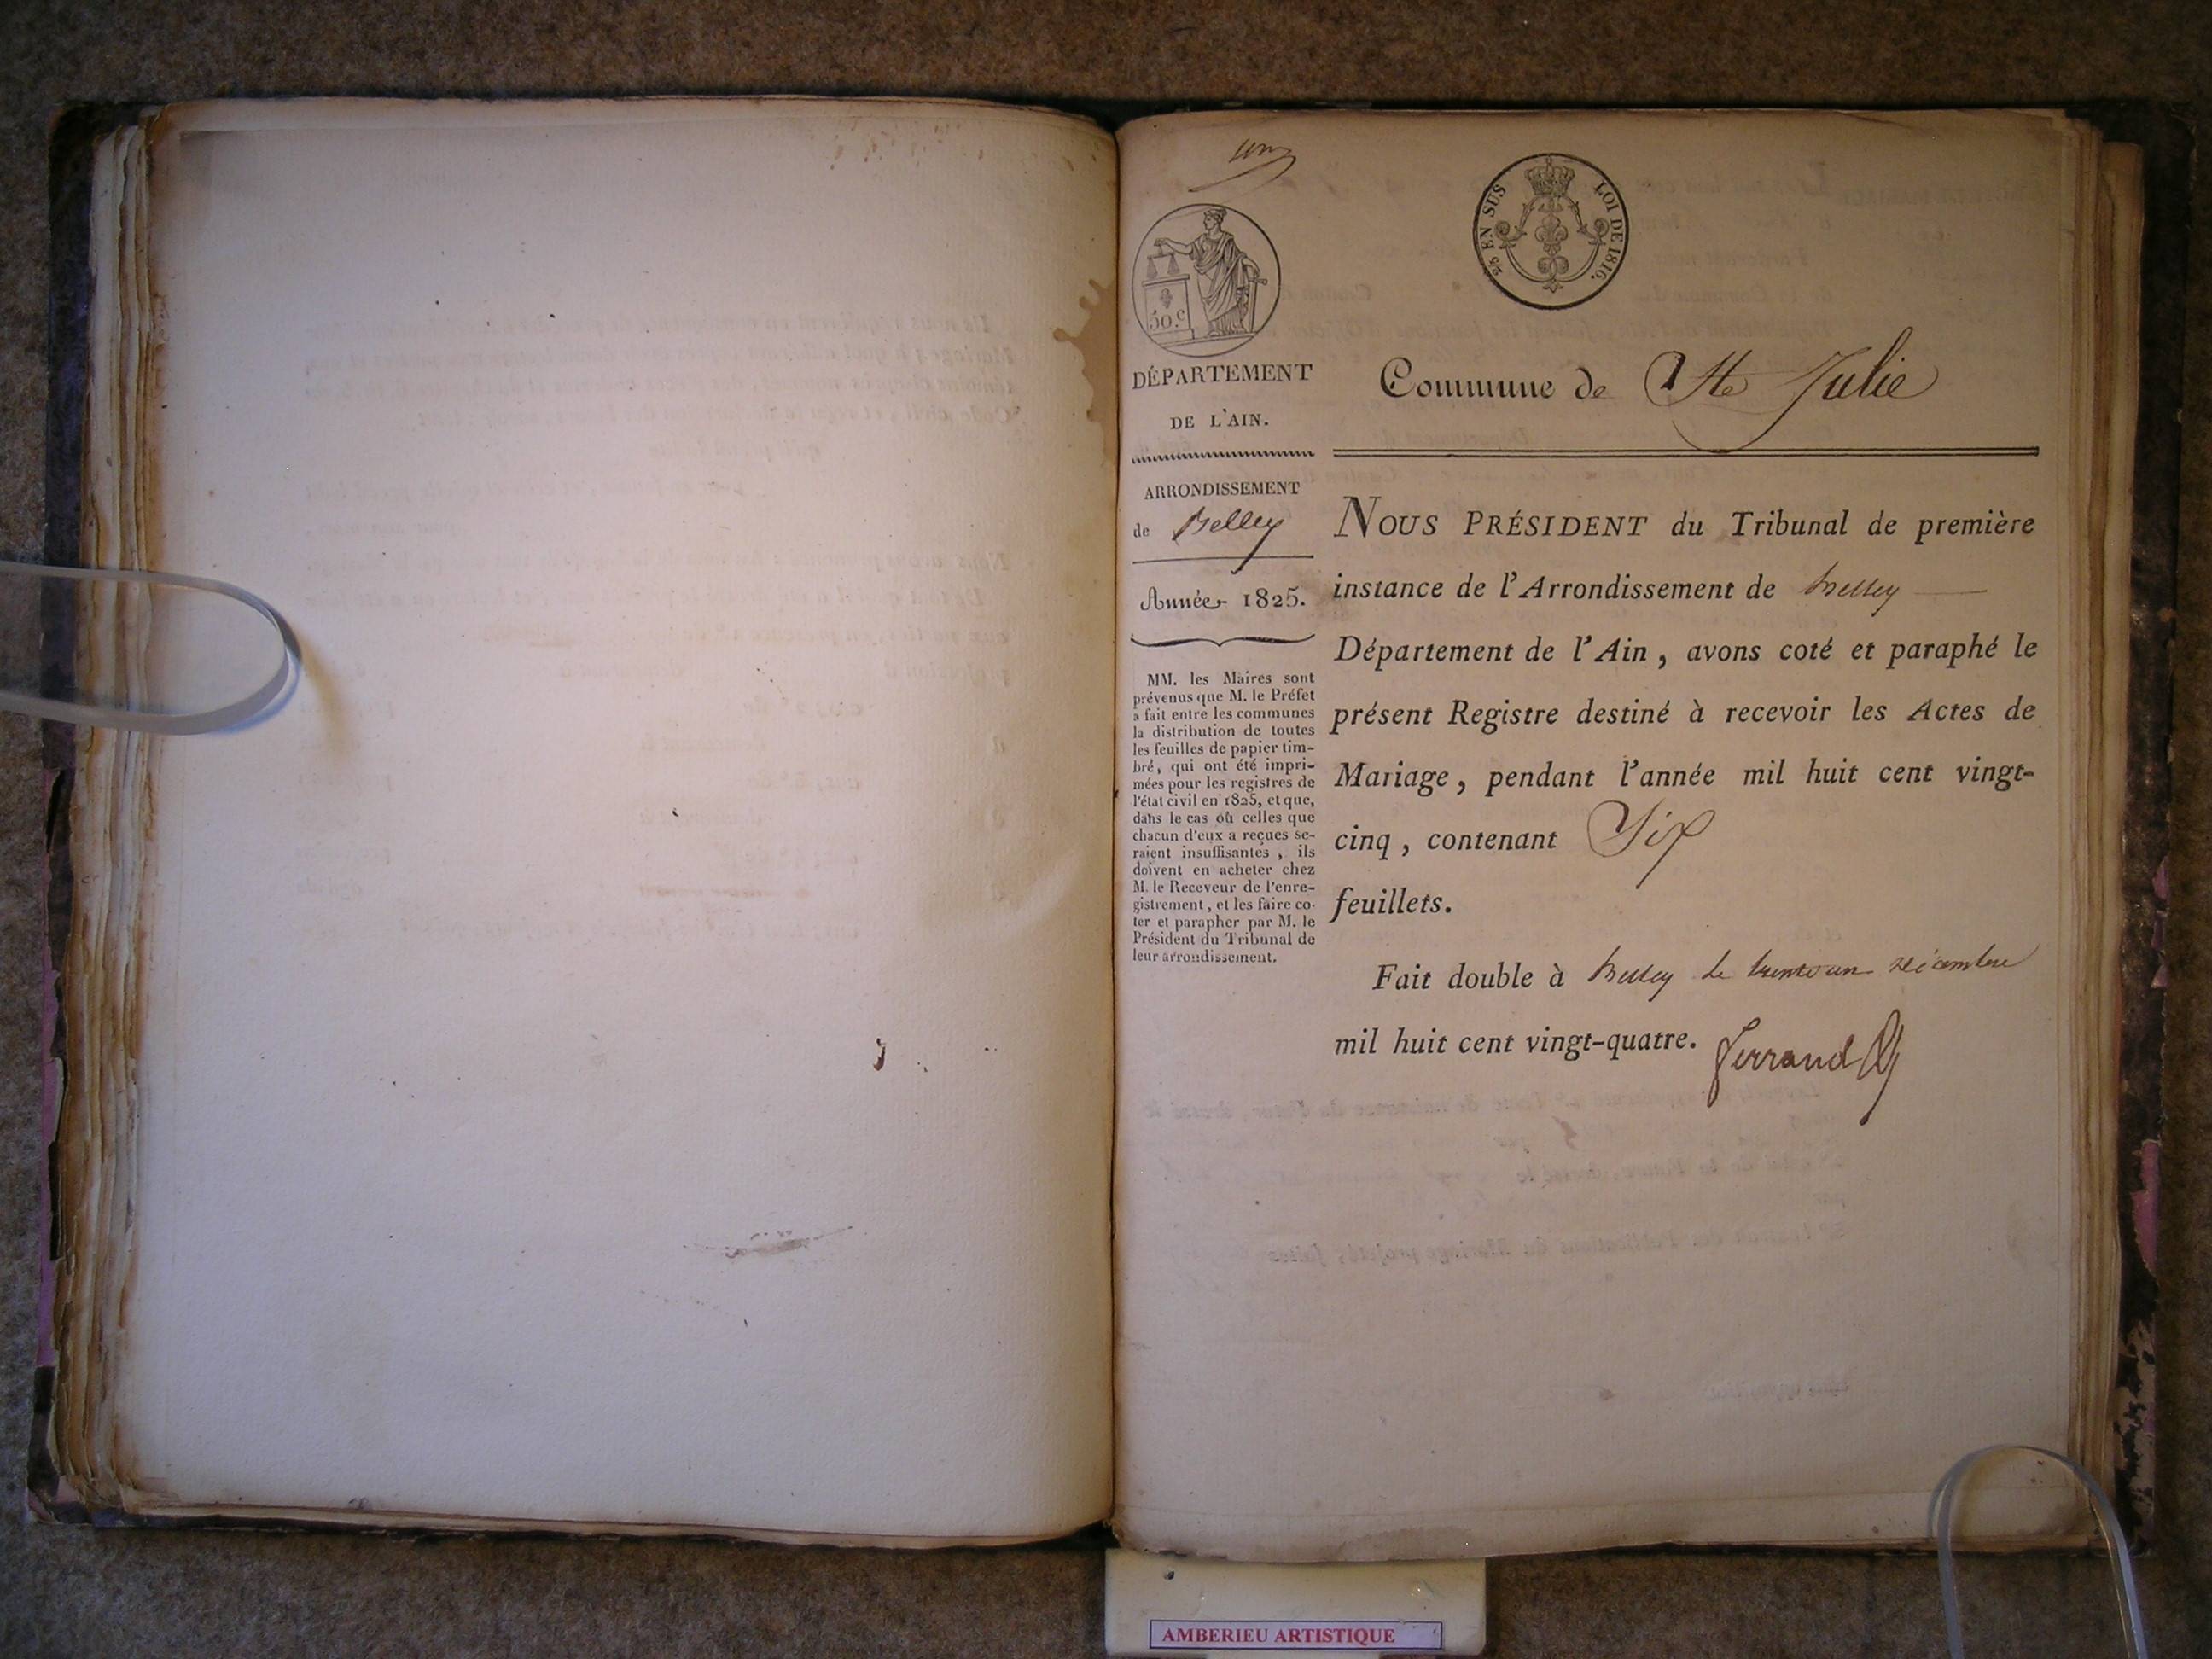 un
25 EN SUS LOI DE 1816.
50.c
DÉPARTEMENT
DE L'AIN.
ARRONDISSEMENT
de Belley
Année 1825.
MM. les Maires sont
prévenus que M. le Préfet
a fait entre les communes
la distribution de toutes
les feuilles de papier tim-
bré, qui ont été impri-
mées pour les registres de
l'état civil en 1825, et que,
dans le cas où celles que
chacun d'eux a reçues se-
raient insuffisantes, ils
doivent en acheter chez
M. le Receveur de l'enre-
gistrement, et les faire co-
ter et parapher par M. le
Président du Tribunal de
leur arrondissement.
Commune de Ste Julie
NOUS PRÉSIDENT du Tribunal de première
instance de l'Arrondissement de Belley
Département de l'Ain, avons coté et paraphé le
présent Registre destiné à recevoir les Actes de
Mariage, pendant l'année mil huit cent vingt-
cinq, contenant Six
feuillets.
Fait double à Belley le trente un décembre
mil huit cent vingt-quatre. Ferrand
AMBERIEU ARTISTIQUE